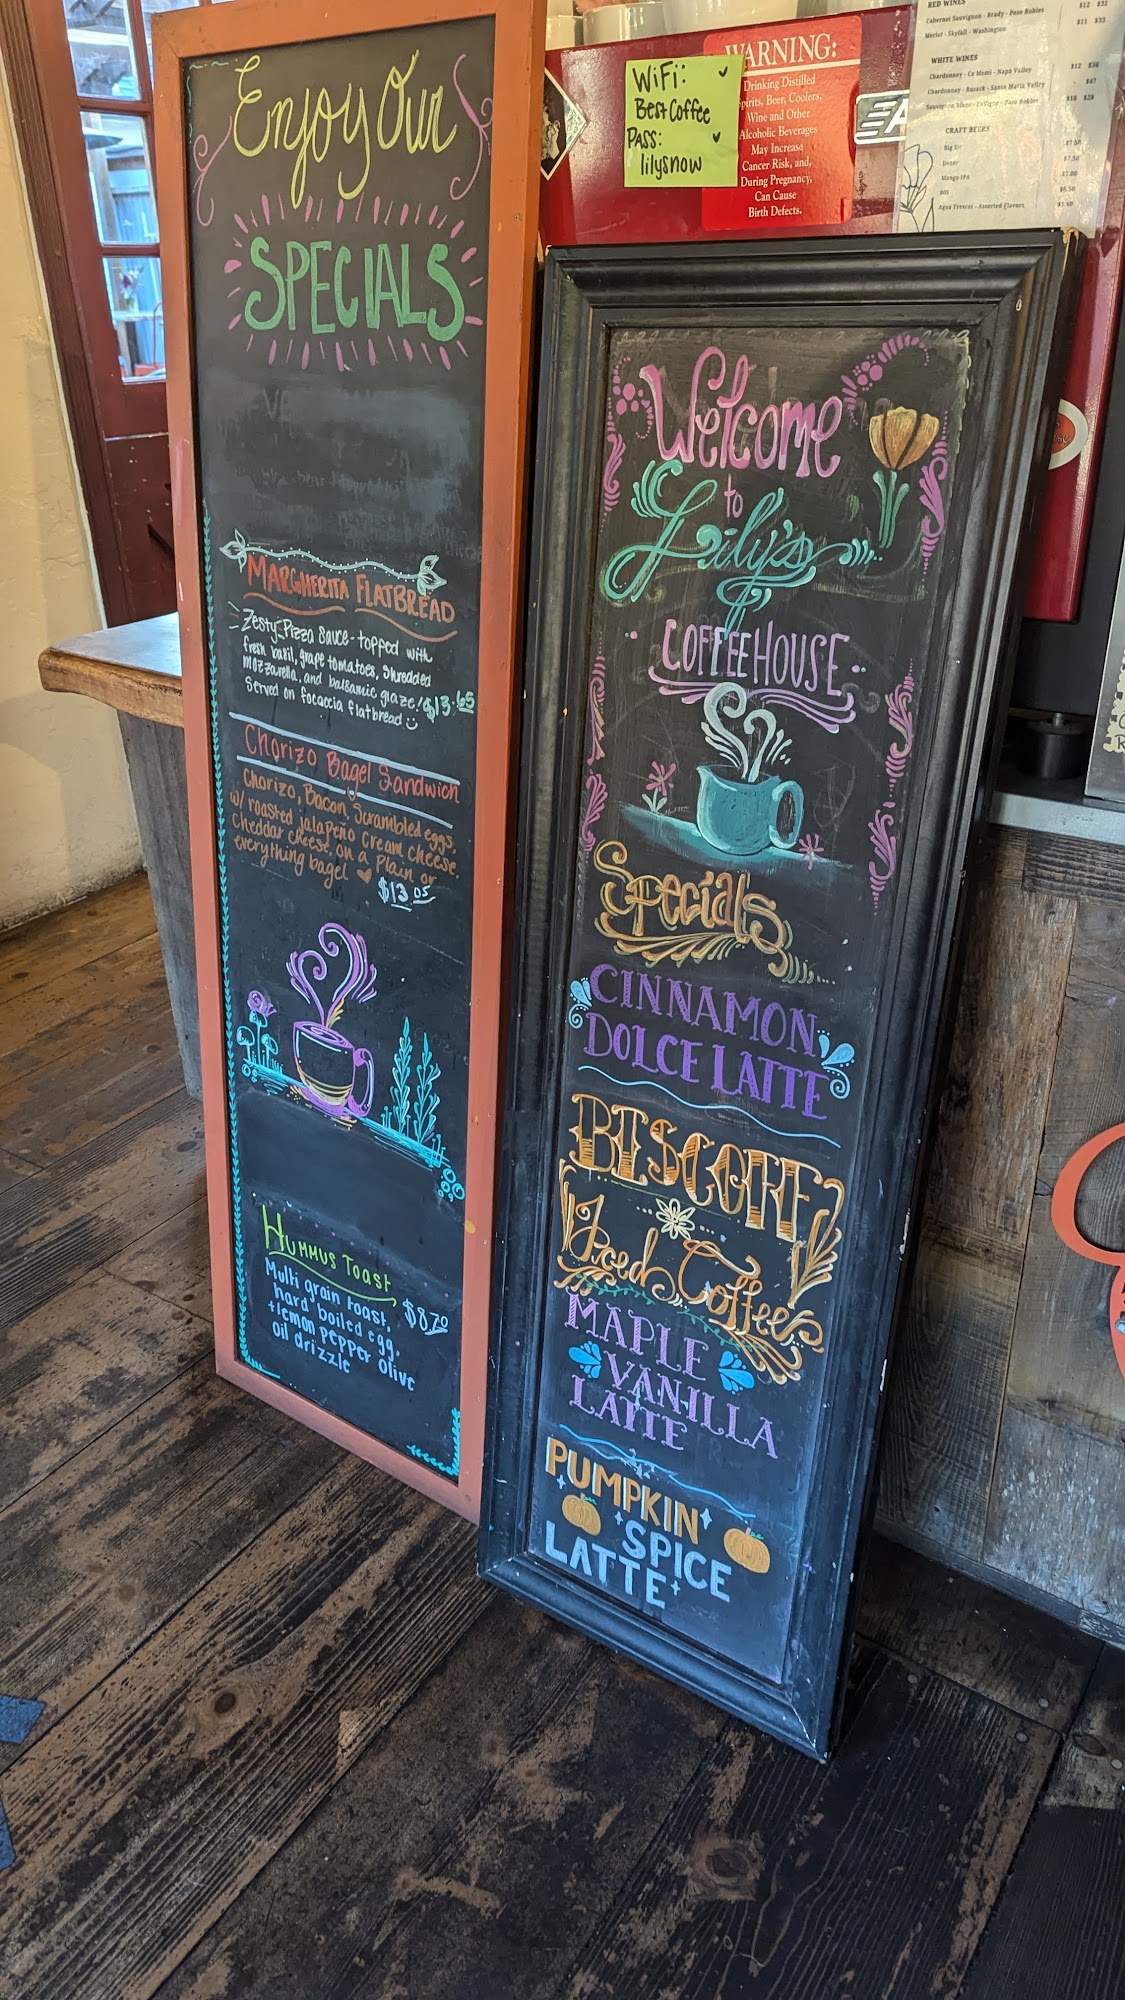 Enjoy Our
SPECIALS
MARGHERITA FLATBREAD
Zesty Pizza Sauce - topped with
fresh basil, grape tomatoes, shredded
mozzarella, and balsamic glaze!
Served on focaccia flatbread
$13.65
Chorizo Bagel Sandwich
Chorizo, Bacon, Scrambled eggs,
w/ roasted jalapeño Cream cheese,
Cheddar cheese, on a Plain or
everything bagel
$13.05
HUMMUS TOAST
Multi grain toast,
hard boiled egg,
+ lemon pepper olive
oil drizzle
$8.70
Welcome
to
Lily's
COFFEEHOUSE
Specials
CINNAMON
DOLCE LATTE
BISCOFF
Iced Coffee
MAPLE
VANILLA
LATTE
PUMPKIN
SPICE
LATTE
WiFi:
Best Coffee
PASS:
lilysnow
WARNING:
Drinking Distilled
Spirits, Beer, Coolers,
Wine and Other
Alcoholic Beverages
May Increase
Cancer Risk, and,
During Pregnancy,
Can Cause
Birth Defects.
RED WINES
Cabernet Sauvignon - Brady - Paso Robles $12 $32
Merlot - Skyfall - Washington $11 $33
WHITE WINES
Chardonnay - Ca Momi - Napa Valley $12 $36
Chardonnay - Rusack - Santa Maria Valley $47
Sauvignon Blanc - Paso Robles $10 $28
CRAFT BEERS
Big Sir $7.50
Doner $7.50
Mango IPA $7.00
805 $6.50
Agua Frescas - Assorted Flavors